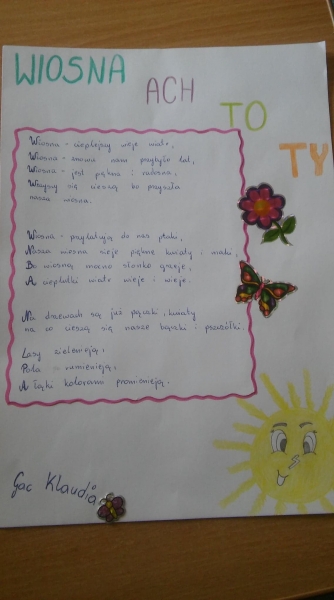 WIOSNA
ACH
TO
TY
Wiosna - cieplejszy wieje wiatr,
Wiosna - znowu nam przybyło lat,
Wiosna - jest piękna i radosna,
Wszyscy się cieszą bo przyszła
nasza wiosna.
Wiosna - przylatują do nas ptaki,
Nasza wiosna sieje piękne kwiaty i maki,
Bo wiosną mocno słonko grzeje,
A cieplutki wiatr wieje i wieje.
Na drzewach są już pączki, kwiaty
na co cieszą się nasze bączki i pszczółki.
Lasy zielenieją,
Pola rumienieją,
A łąki kolorami promienieją.
Gac Klaudia